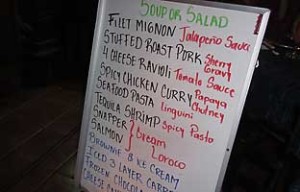 SOUP OR SALAD
FILET MIGNON Jalapeño Sauce
STUFFED ROAST PORK Sherry Gravy
4 CHEESE RAVIOLI Tomato Sauce
SPICY CHICKEN CURRY Papaya Chutney
SEAFOOD PASTA linguini
TEQUILA SHRIMP Spicy Pasta
SNAPPER } Cream
SALMON } Loroco
BROWNIE & ICE CREAM
ICED 3 LAYER
FROZEN CHOCOLA
CHEESE